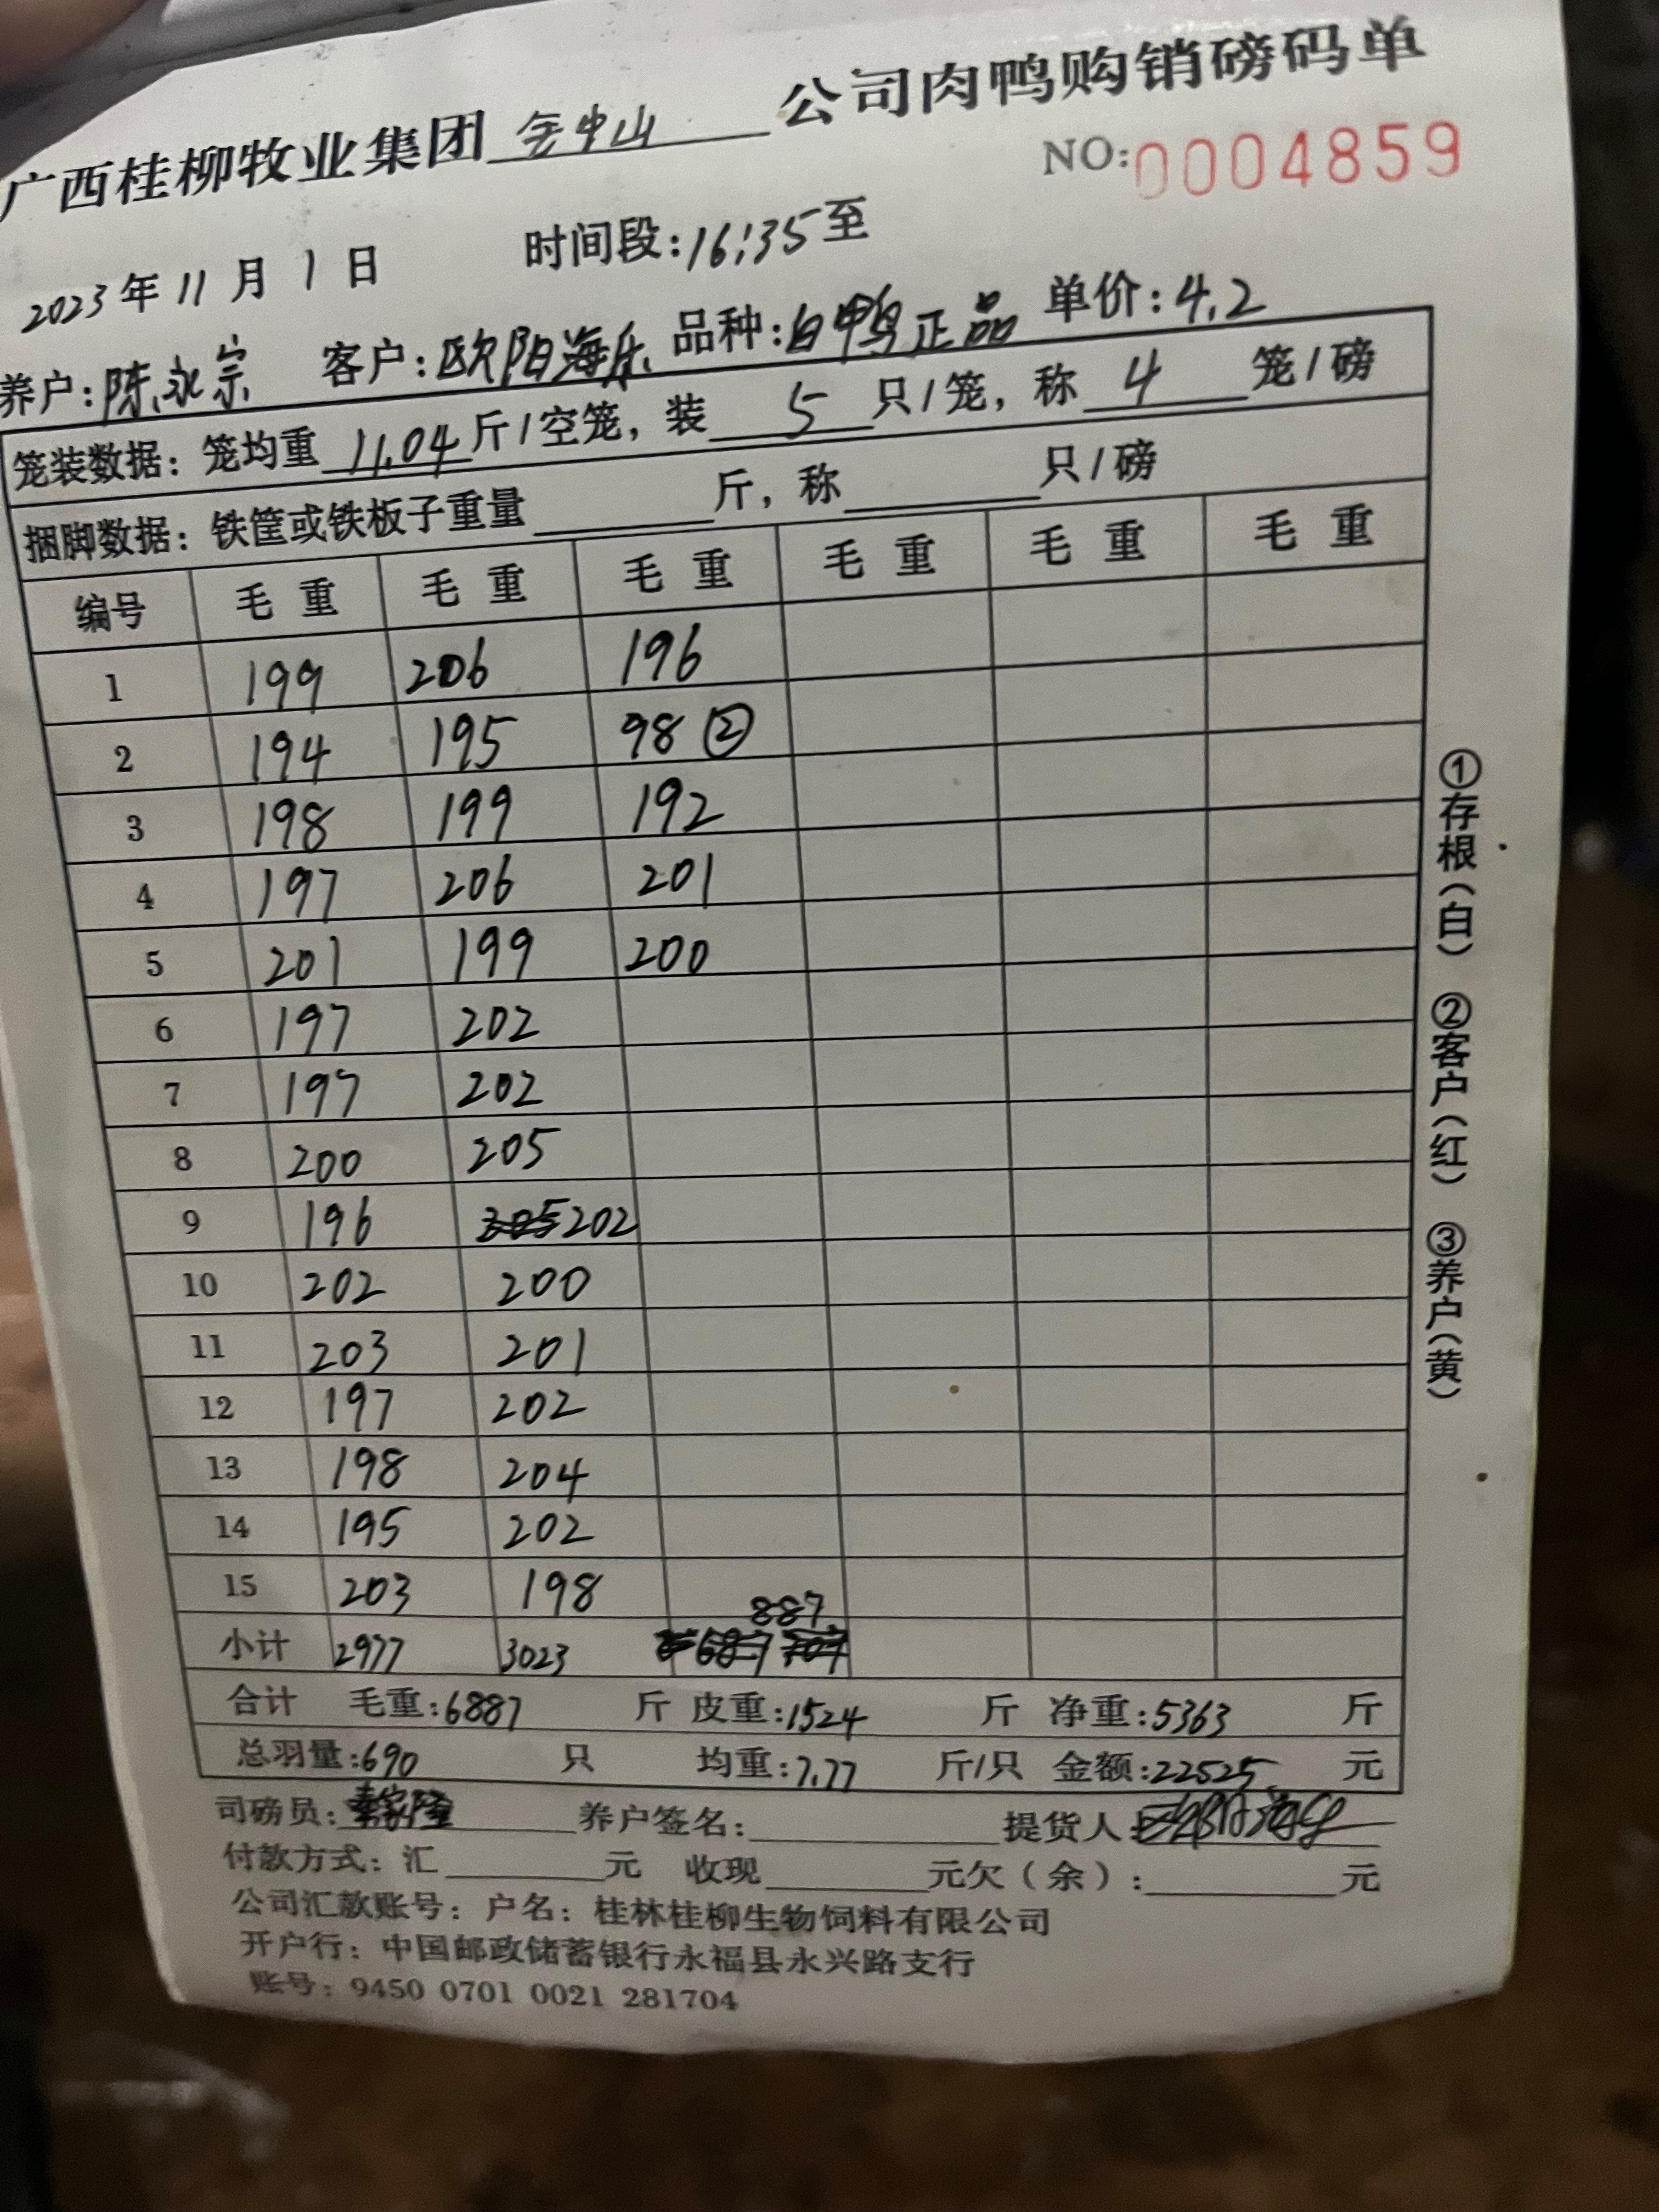 广西桂柳牧业集团 金中山 公司肉鸭购销磅码单
NO:0004859
2023年11月1日 时间段:16:35至
养户:陈永宗 客户:欧阳海乐 品种:白鸭正品 单价:4.2
笼装数据: 笼均重 11.04 斤/空笼, 装 5 只/笼, 称 4 笼/磅
捆脚数据: 铁筐或铁板子重量 斤, 称 只/磅
编号 毛重 毛重 毛重 毛重 毛重 毛重
1 199 206 196
2 194 195 98 ②
3 198 199 192
4 197 206 201
5 201 199 200
6 197 202
7 197 202
8 200 205
9 196 202
10 202 200
11 203 201
12 197 202
13 198 204
14 195 202
15 203 198
小计 2977 3023 887
合计 毛重:6887 斤 皮重:1524 斤 净重:5363 斤
总羽量:690 只 均重:7.77 斤/只 金额:22525 元
司磅员: 养户签名: 提货人:
付款方式: 汇 元 收现 元欠(余): 元
公司汇款账号: 户名: 桂林桂柳生物饲料有限公司
开户行: 中国邮政储蓄银行永福县永兴路支行
账号: 9450 0701 0021 281704
①存根(白) ②客户(红) ③养户(黄)